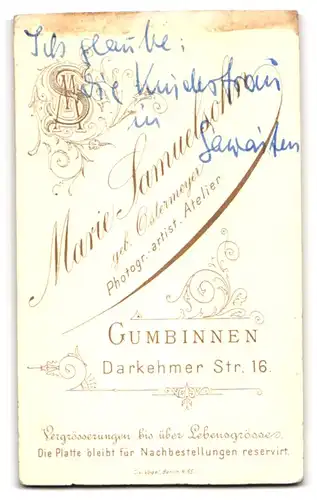 Ich glaube:
die Kinderfrau
in
MS
Marie Samuelsohn
geb. Ostermeyer
Photogr.-artist-Atelier
GUMBINNEN
Darkehmer Str. 16.
Vergrösserungen bis über Lebensgrösse.
Die Platte bleibt für Nachbestellungen reservirt.